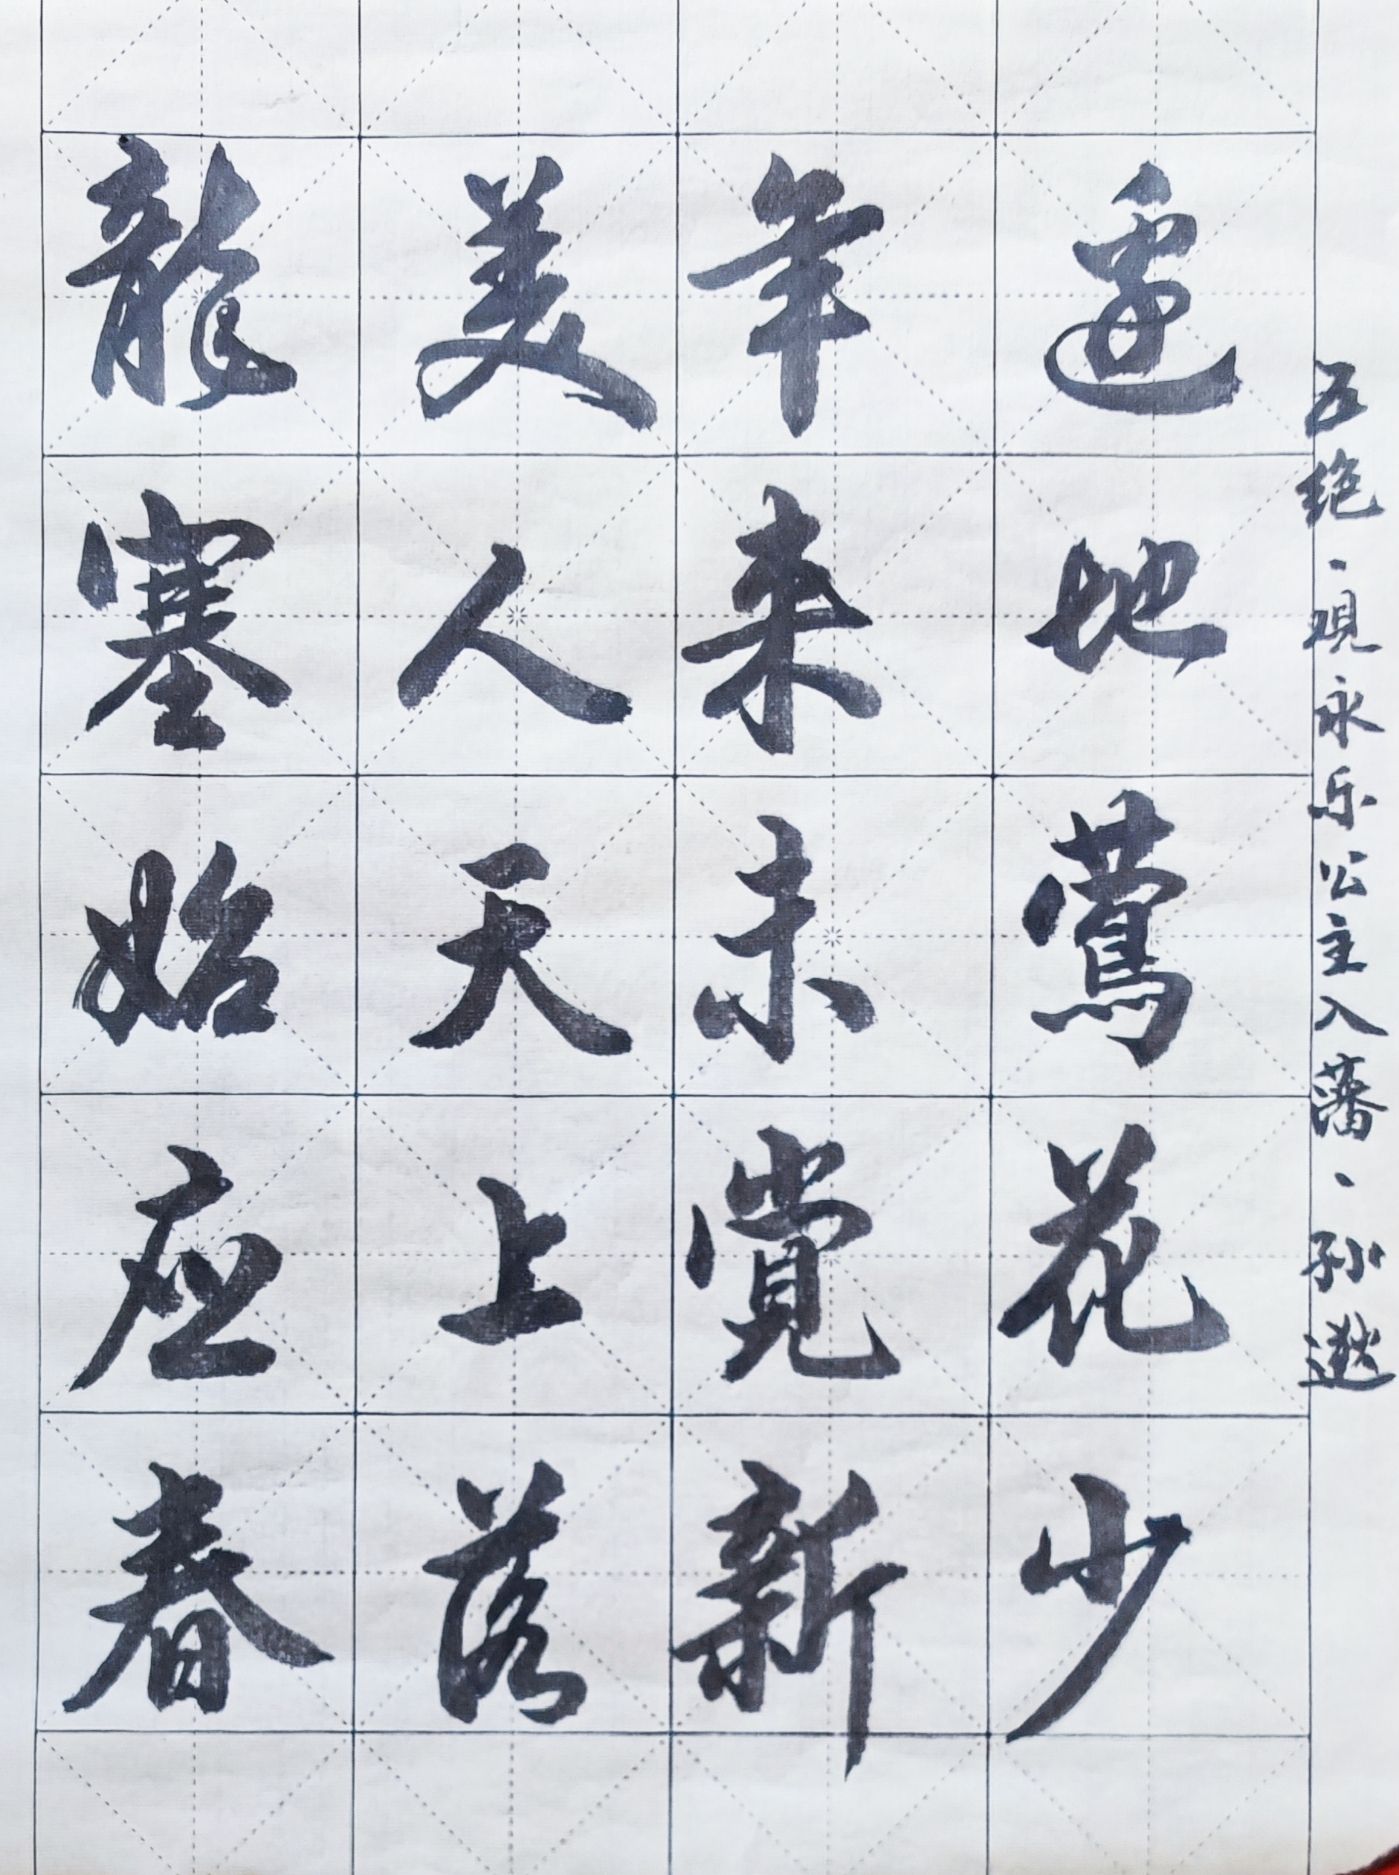 五绝·观永乐公主入藩·孙逖
边地莺花少
年来未觉新
美人天上落
龍塞始应春